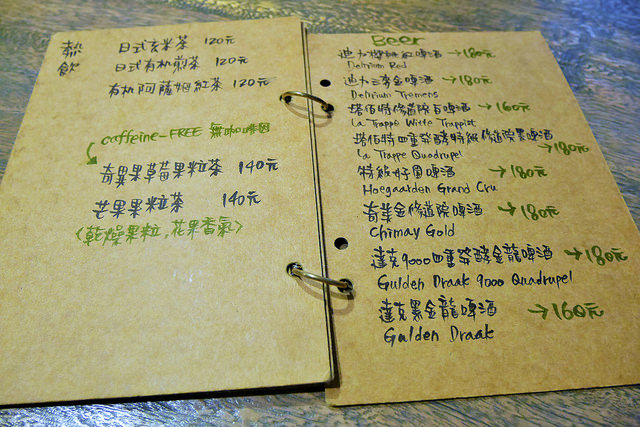 熱飲
日式玄米茶 120元
日式有机煎茶 120元
有机阿薩姆紅茶 120元
caffeine-FREE 無咖啡因
奇異果草莓果粒茶 140元
芒果果粒茶 140元
(乾燥果粒,花果香氣)
Beer
啤酒 →180元
Delirium Red
啤酒 →180元
Delirium Tremens
塔伯特修道院白啤酒 →160元
La Trappe Witte Trappist
塔伯特四重發酵特級修道院黑啤酒 →180元
La Trappe Quadrupel
特級好月啤酒 →180元
Hoegaarden Grand Cru
奇美金修道院啤酒 →180元
Chimay Gold
達克9000四重發酵金龍啤酒 →180元
Gulden Draak 9000 Quadrupel
達克黑金龍啤酒 →160元
Gulden Draak